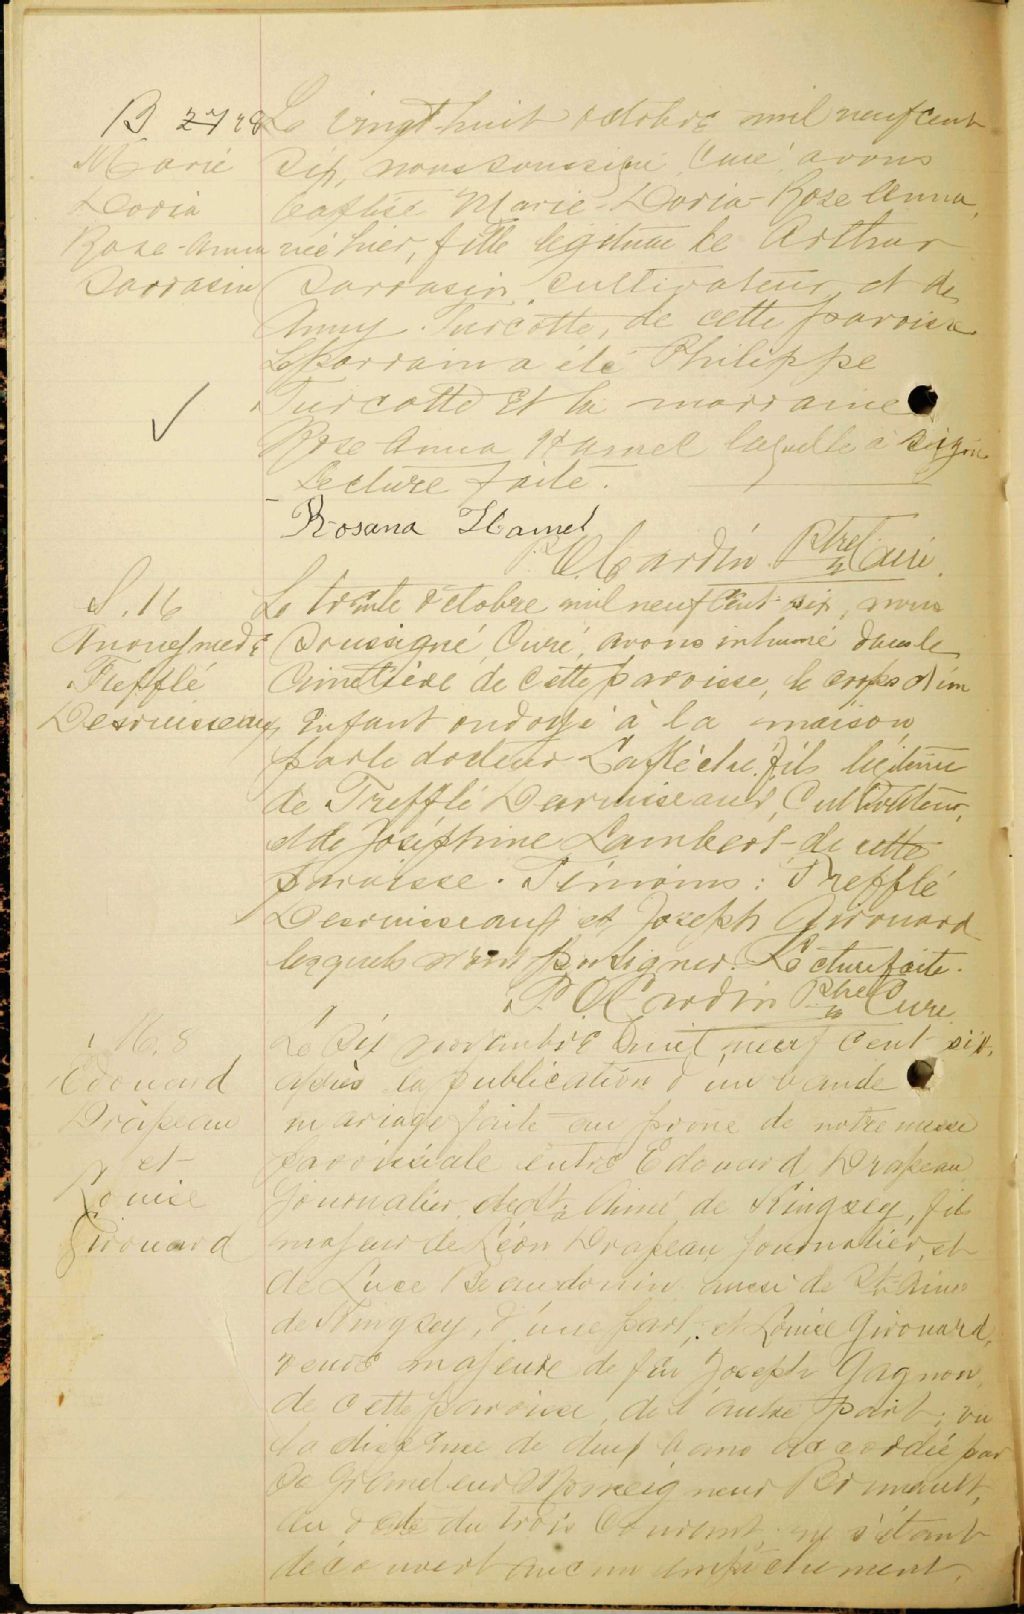 B 27 28
Marie
Doria
Rose-Anna
Sarrasin
Le vingt-huit octobre mil neuf cent
six, nous soussigné, Curé, avons
baptisé Marie-Doria-Rose Anna,
née hier, fille légitime de Arthur
Sarrasin, cultivateur, et de
Anny Turcotte, de cette paroisse.
Le parrain a été Philippe
Turcotte et la marraine
Rose Anna Hamel laquelle a signé.
Lecture faite.
Rosana Hamel
P. O. Cardin Ptre Curé.
S. 16
Anonyme de
Trefflé
Desruisseaux
Le trente octobre mil neuf cent six, nous
soussigné, Curé, avons inhumé dans le
Cimetière de cette paroisse, le corps d'un
Enfant ondoyé à la maison,
par le docteur Laflèche, fils légitime
de Trefflé Desruisseaux, Cultivateur,
et de Joséphine Lambert de cette
paroisse. Témoins: Trefflé
Desruisseaux et Joseph Girouard
lesquels n'ont pu signer. Lecture faite.
P. O. Cardin Ptre Curé
M. 8
Edouard
Drapeau
et
Louise
Girouard
Le six novembre mil neuf cent six,
après la publication d'un bande
mariage faite au prône de notre messe
paroissiale entre Edouard Drapeau,
Journalier de St Aimé de Kingsey, fils
majeur de Léon Drapeau journalier, et
de Luce Beaudouin aussi de St Aimé
de Kingsey, d'une part; et Louise Girouard,
veuve majeure de feu Joseph Gagnon,
de cette paroisse, de l'autre part; vu
la dispense de deux bans accordée par
Sa Grandeur Monseigneur Brunault,
en date du trois Courant, ne s'étant
découvert aucun empêchement,